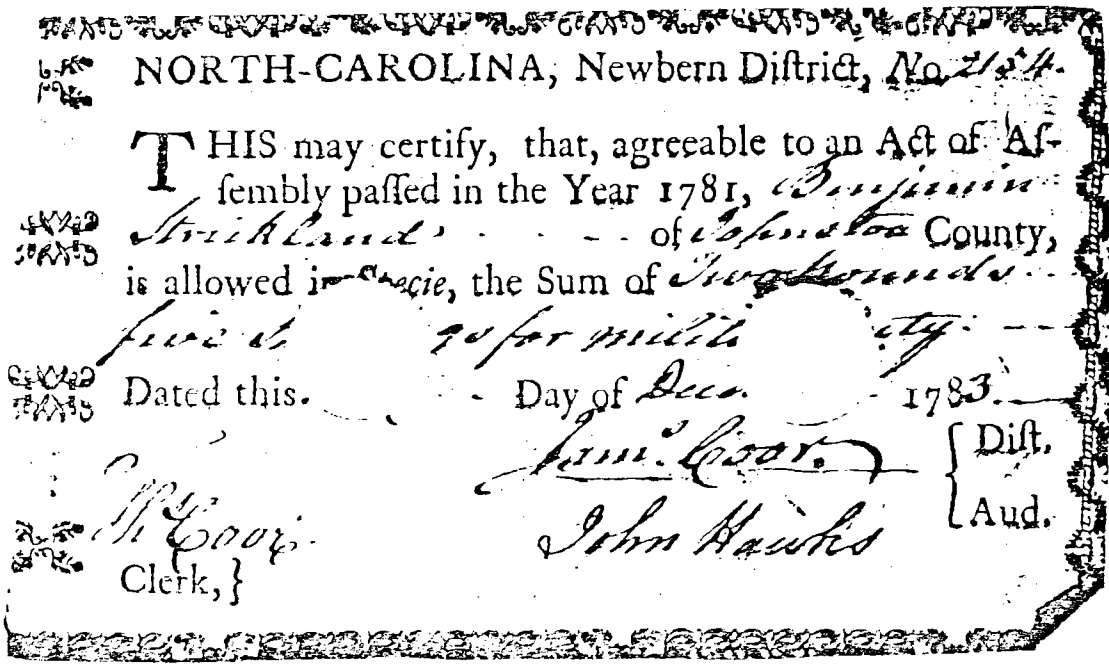 NORTH-CAROLINA, Newbern Diſtrict, No 2154.
THIS may certify, that, agreeable to an Act of Aſ-
ſembly paſſed in the Year 1781, Benjamin
Strickland of Johnston County,
is allowed in Specie, the Sum of Two Pounds
five for
Dated this. Day of Decr. 1783.
Jams. Coor. { Diſt.
John Hawks Aud.
Coor
Clerk, }